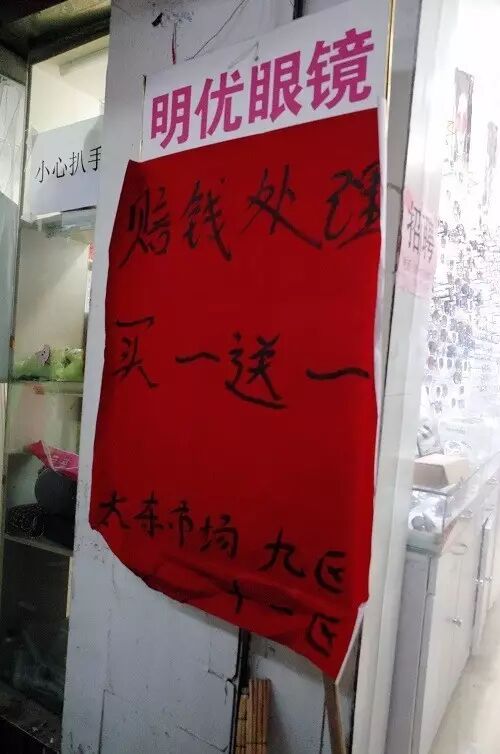 明优眼镜
小心扒手
赔钱处理
招聘
买一送一
大东市场 九区
十一区